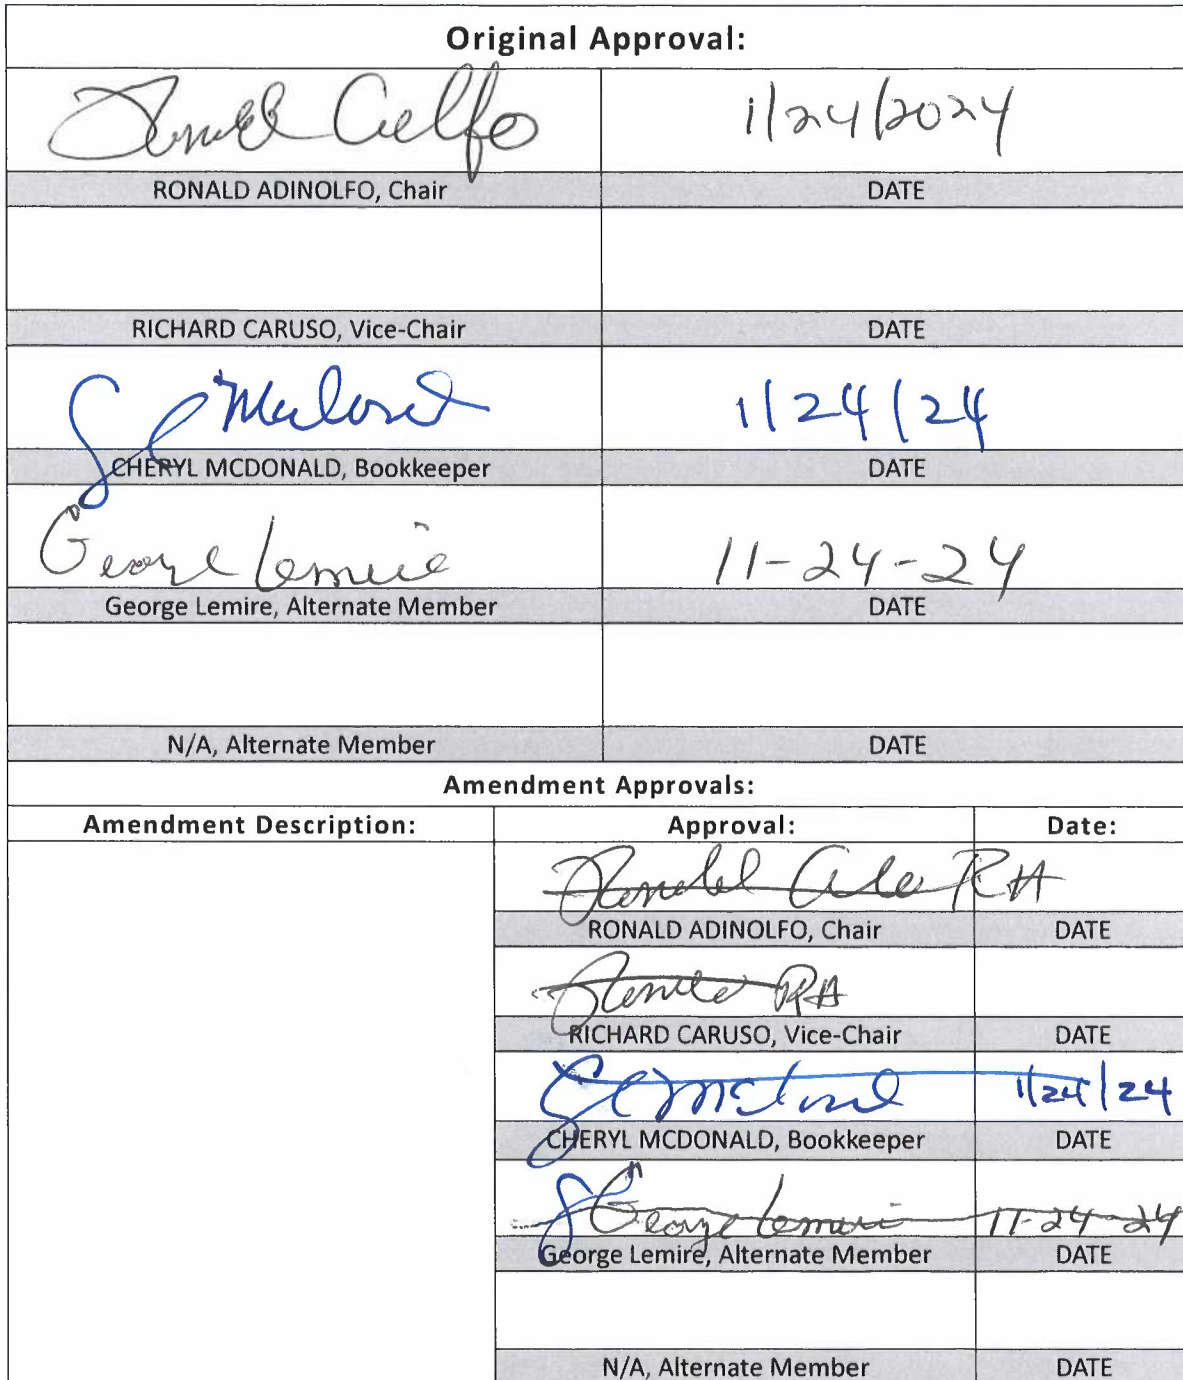 Original Approval:
1/24/2024
RONALD ADINOLFO, Chair DATE
RICHARD CARUSO, Vice-Chair DATE
McDonald 1/24/24
CHERYL MCDONALD, Bookkeeper DATE
George Lemire 11-24-24
George Lemire, Alternate Member DATE
N/A, Alternate Member DATE
Amendment Approvals:
Amendment Description: Approval: Date:
RA
RONALD ADINOLFO, Chair DATE
RA
RICHARD CARUSO, Vice-Chair DATE
1/24/24
CHERYL MCDONALD, Bookkeeper DATE
George Lemire 11-24-24
George Lemire, Alternate Member DATE
N/A, Alternate Member DATE